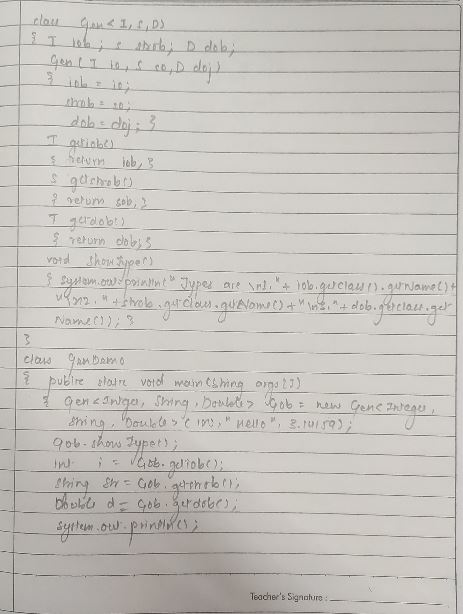 class Gen< I, S, D>
{ I iob ; S strob; D dob;
Gen( I io, S so, D doj)
{ iob = io;
strob = so;
dob = doj; }
I getiob()
{ return iob, }
S getstrob()
{ return sob, }
I getdob()
{ return dob; }
void showType()
{ System.out.println(" Types are \n1." + iob.getclass().getName() +
"\n2." + strob.getclass.getName() + "\n3." + dob.getclass.get
Name()); }
}
class GenDemo
{ public static void main(String args[])
{ Gen<Integer, String, Double> Gob = new Gen<Integer,
String, Double> ( "Hello", 3.14159);
Gob.showType();
int i = Gob.getiob();
String str = Gob.getstrob();
Double d = Gob.getdob();
System.out.println();
Teacher's Signature :